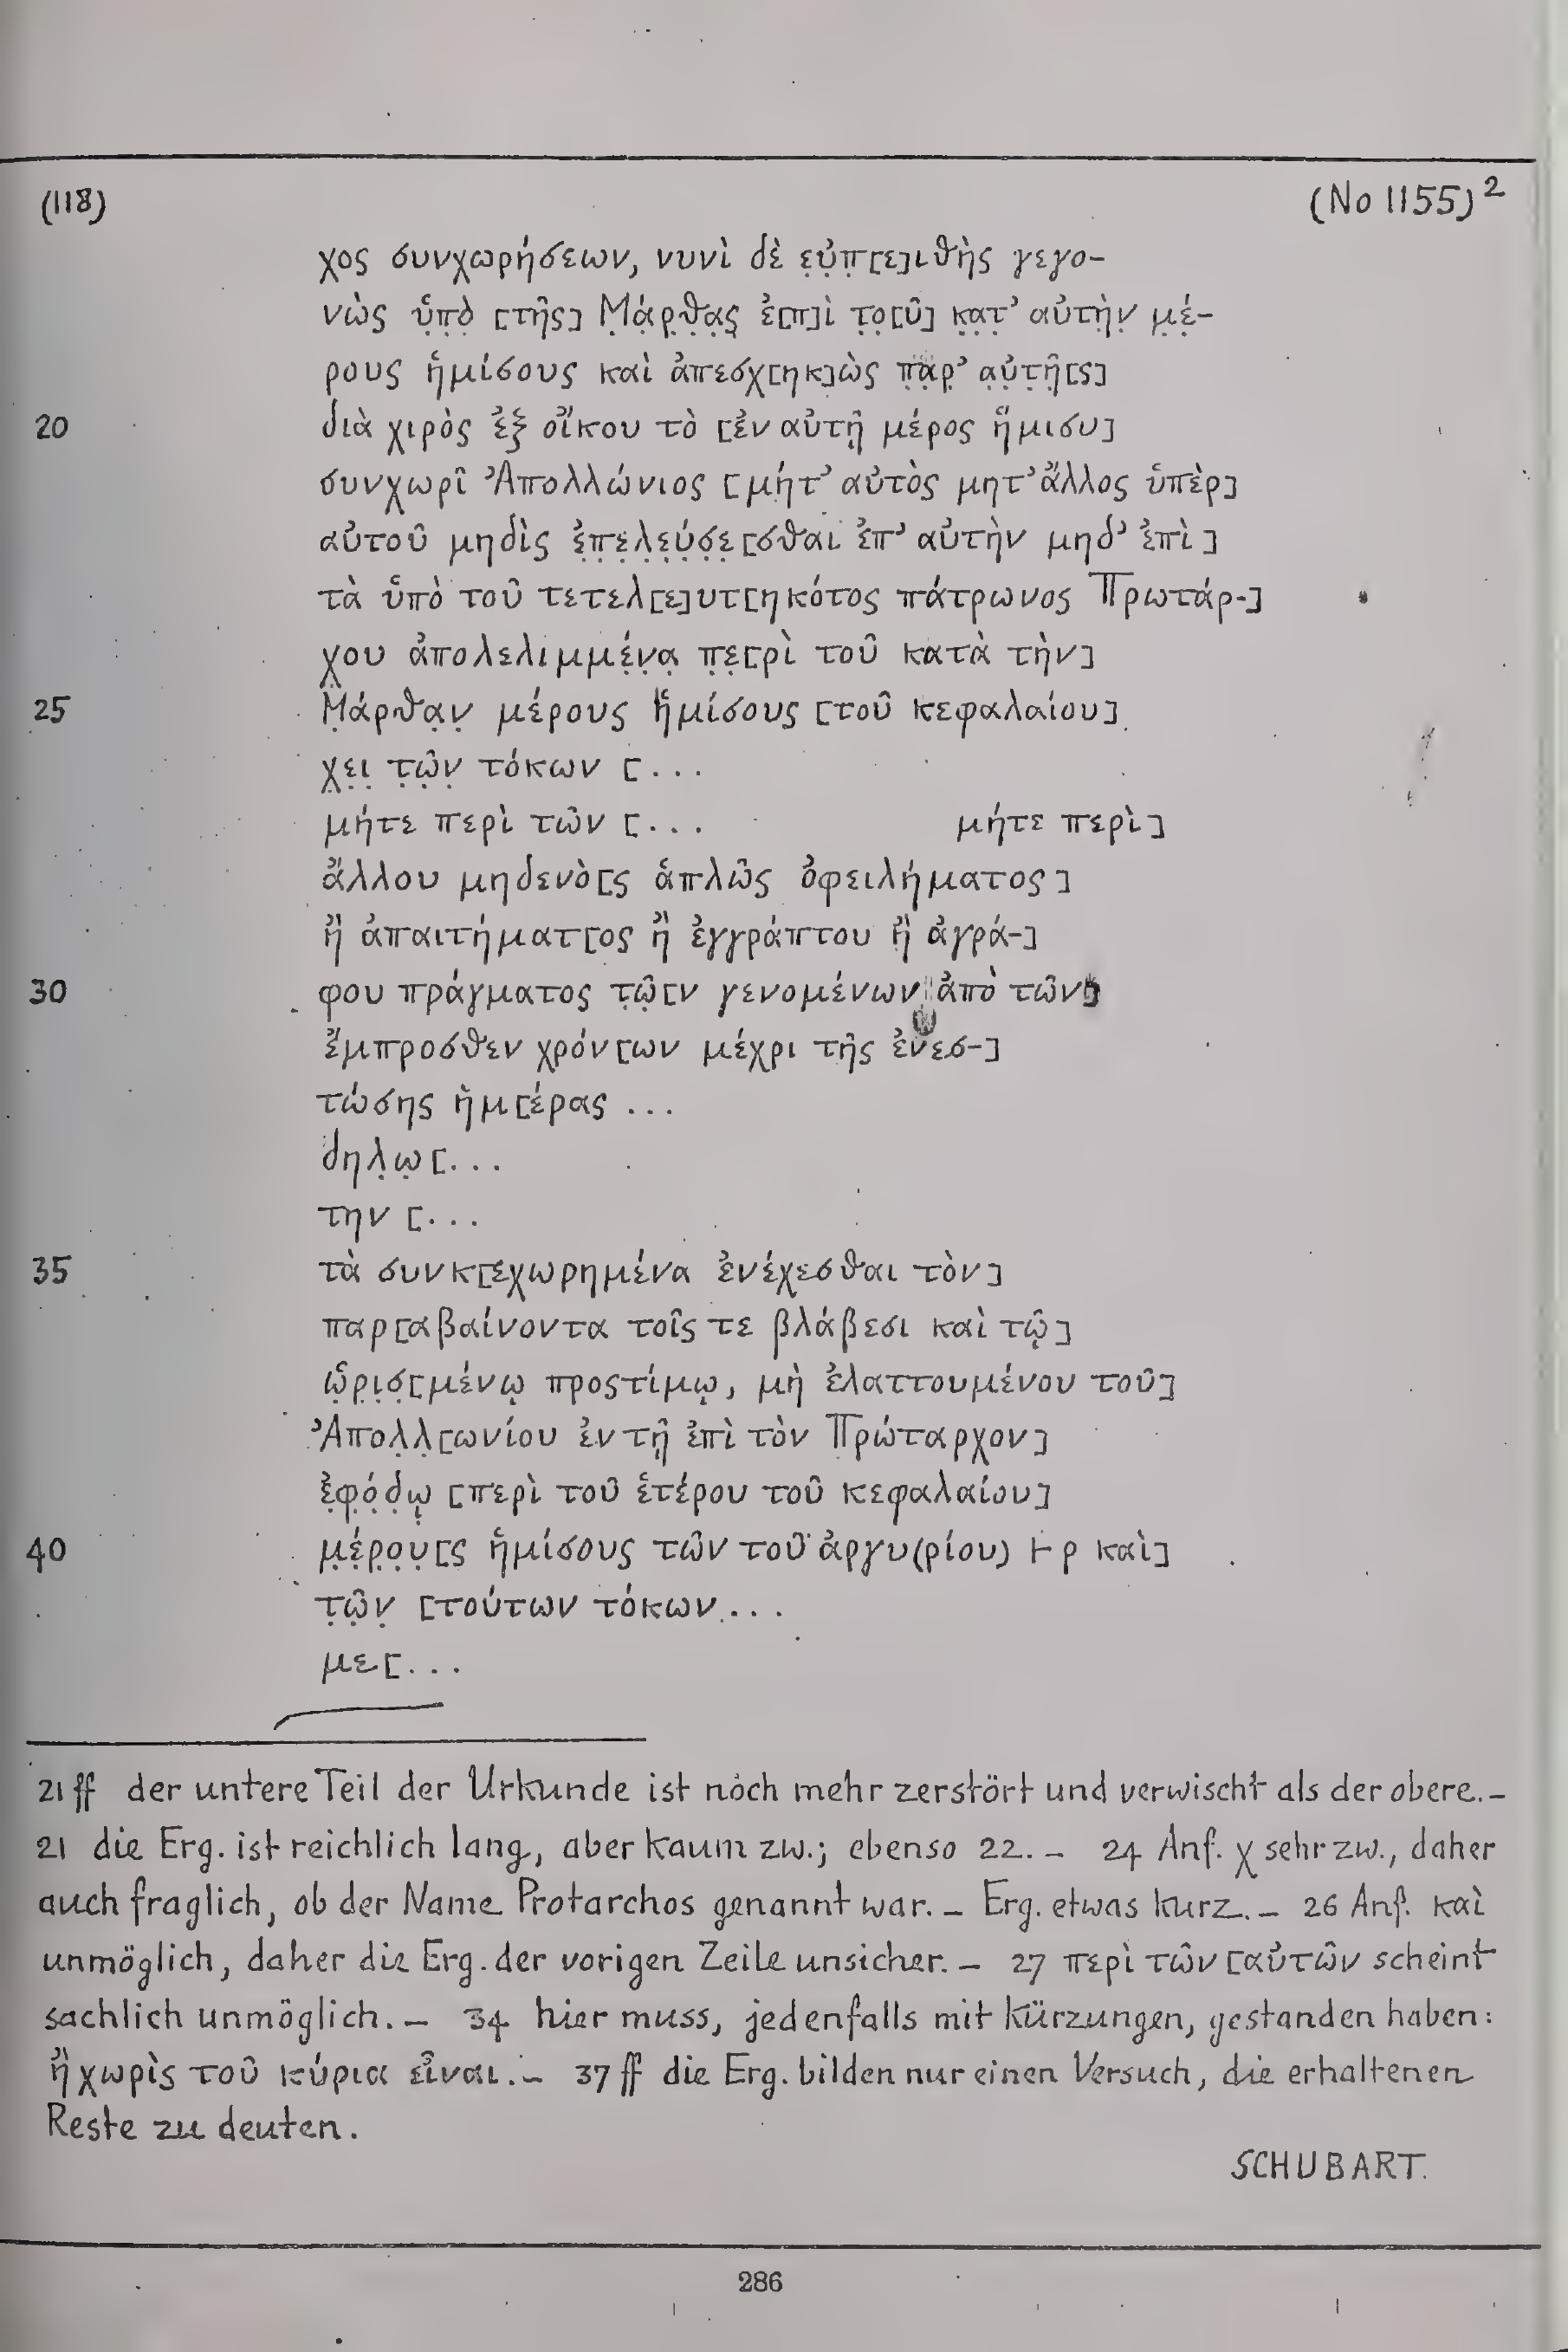 (118) (No 1155)²
χος συνχωρήσεων, νυνὶ δὲ ε̣ὐ̣π̣[ε]ιθὴς γεγο-
νὼς ὑ̣π̣ὸ̣ [τῆς] Μ̣ά̣ρ̣θ̣α̣ς̣ ἐ[π]ὶ τ̣ο̣[ῦ] κ̣α̣τ̣’ αὐτὴ̣ν̣ μ̣έ̣-
ρους ἡμίσους καὶ ἀπεσχ[ηκ]ὼς π̣α̣ρ̣’ α̣ὐ̣τ̣ῆ̣[ς]
20 διὰ χιρὸς ἐξ οἴκου τὸ [ἐν αὐτῇ μέρος ἥμισυ]
συνχωρῖ Ἀπολλώνιος [μήτ’ αὐτὸς μητ’ ἄλλος ὑπὲρ]
αὐτοῦ μηδὶς ἐ̣π̣ε̣λ̣ε̣ύ̣σ̣ε̣[σθαι ἐπ’ αὐτὴν μηδ’ ἐπὶ]
τὰ ὑπὸ τοῦ τετελ[ε]υτ[ηκότος πάτρωνος Πρωτάρ-]
χ̣ου ἀπολελιμμέ̣ν̣α̣ π̣ε̣[ρὶ τοῦ κατὰ τὴν]
25 Μ̣άρθα̣ν̣ μέρους ἡμίσους [τοῦ κεφαλαίου]
χ̣ε̣ι̣ τ̣ῶ̣ν̣ τόκων [...
μήτε περὶ τῶν [... μήτε περὶ]
ἄλλου μηδενὸ[ς ἁπλῶς ὀφειλήματος]
ἢ ἀπαιτήματ[ος ἢ ἐγγράπτου ἢ ἀγρά-]
30 φου πράγματος τ̣ῶ̣[ν γενομένων ἀπὸ τῶν]
ἔμπροσθεν χρόν[ων μέχρι τῆς ἐνεσ-]
τώσης ἡμ[έρας ...
δηλ̣ω̣[...
την [...
35 τὰ συνκ[εχωρημένα ἐνέχεσθαι τὸν]
παρ[αβαίνοντα τοῖς τε βλάβεσι καὶ τῷ]
ὡ̣ρ̣ι̣σ̣[μένῳ προςτίμῳ, μὴ ἐλαττουμένου τοῦ]
Ἀπολ̣λ̣[ωνίου ἐν τῇ ἐπὶ τὸν Πρώταρχον]
ἐ̣φ̣ό̣δ̣ῳ̣ [περὶ τοῦ ἑτέρου τοῦ κεφαλαίου]
40 μ̣έ̣ρ̣ο̣υ̣[ς ἡμίσους τῶν τοῦ ἀργυ(ρίου) ⊢ ρ καὶ]
τ̣ῶ̣ν̣ [τούτων τόκων...
με[...
21 ff der untere Teil der Urkunde ist noch mehr zerstört und verwischt als der obere. –
21 die Erg. ist reichlich lang, aber kaum zw.; ebenso 22. – 24 Anf. χ sehr zw., daher
auch fraglich, ob der Name Protarchos genannt war. – Erg. etwas kurz. – 26 Anf. καὶ
unmöglich, daher die Erg. der vorigen Zeile unsicher. – 27 περὶ τῶν [αὐτῶν scheint
sachlich unmöglich. – 34 hier muss, jedenfalls mit Kürzungen, gestanden haben:
ἢ χωρὶς τοῦ κύρια εἶναι. – 37 ff die Erg. bilden nur einen Versuch, die erhaltenen
Reste zu deuten.
SCHUBART.
286